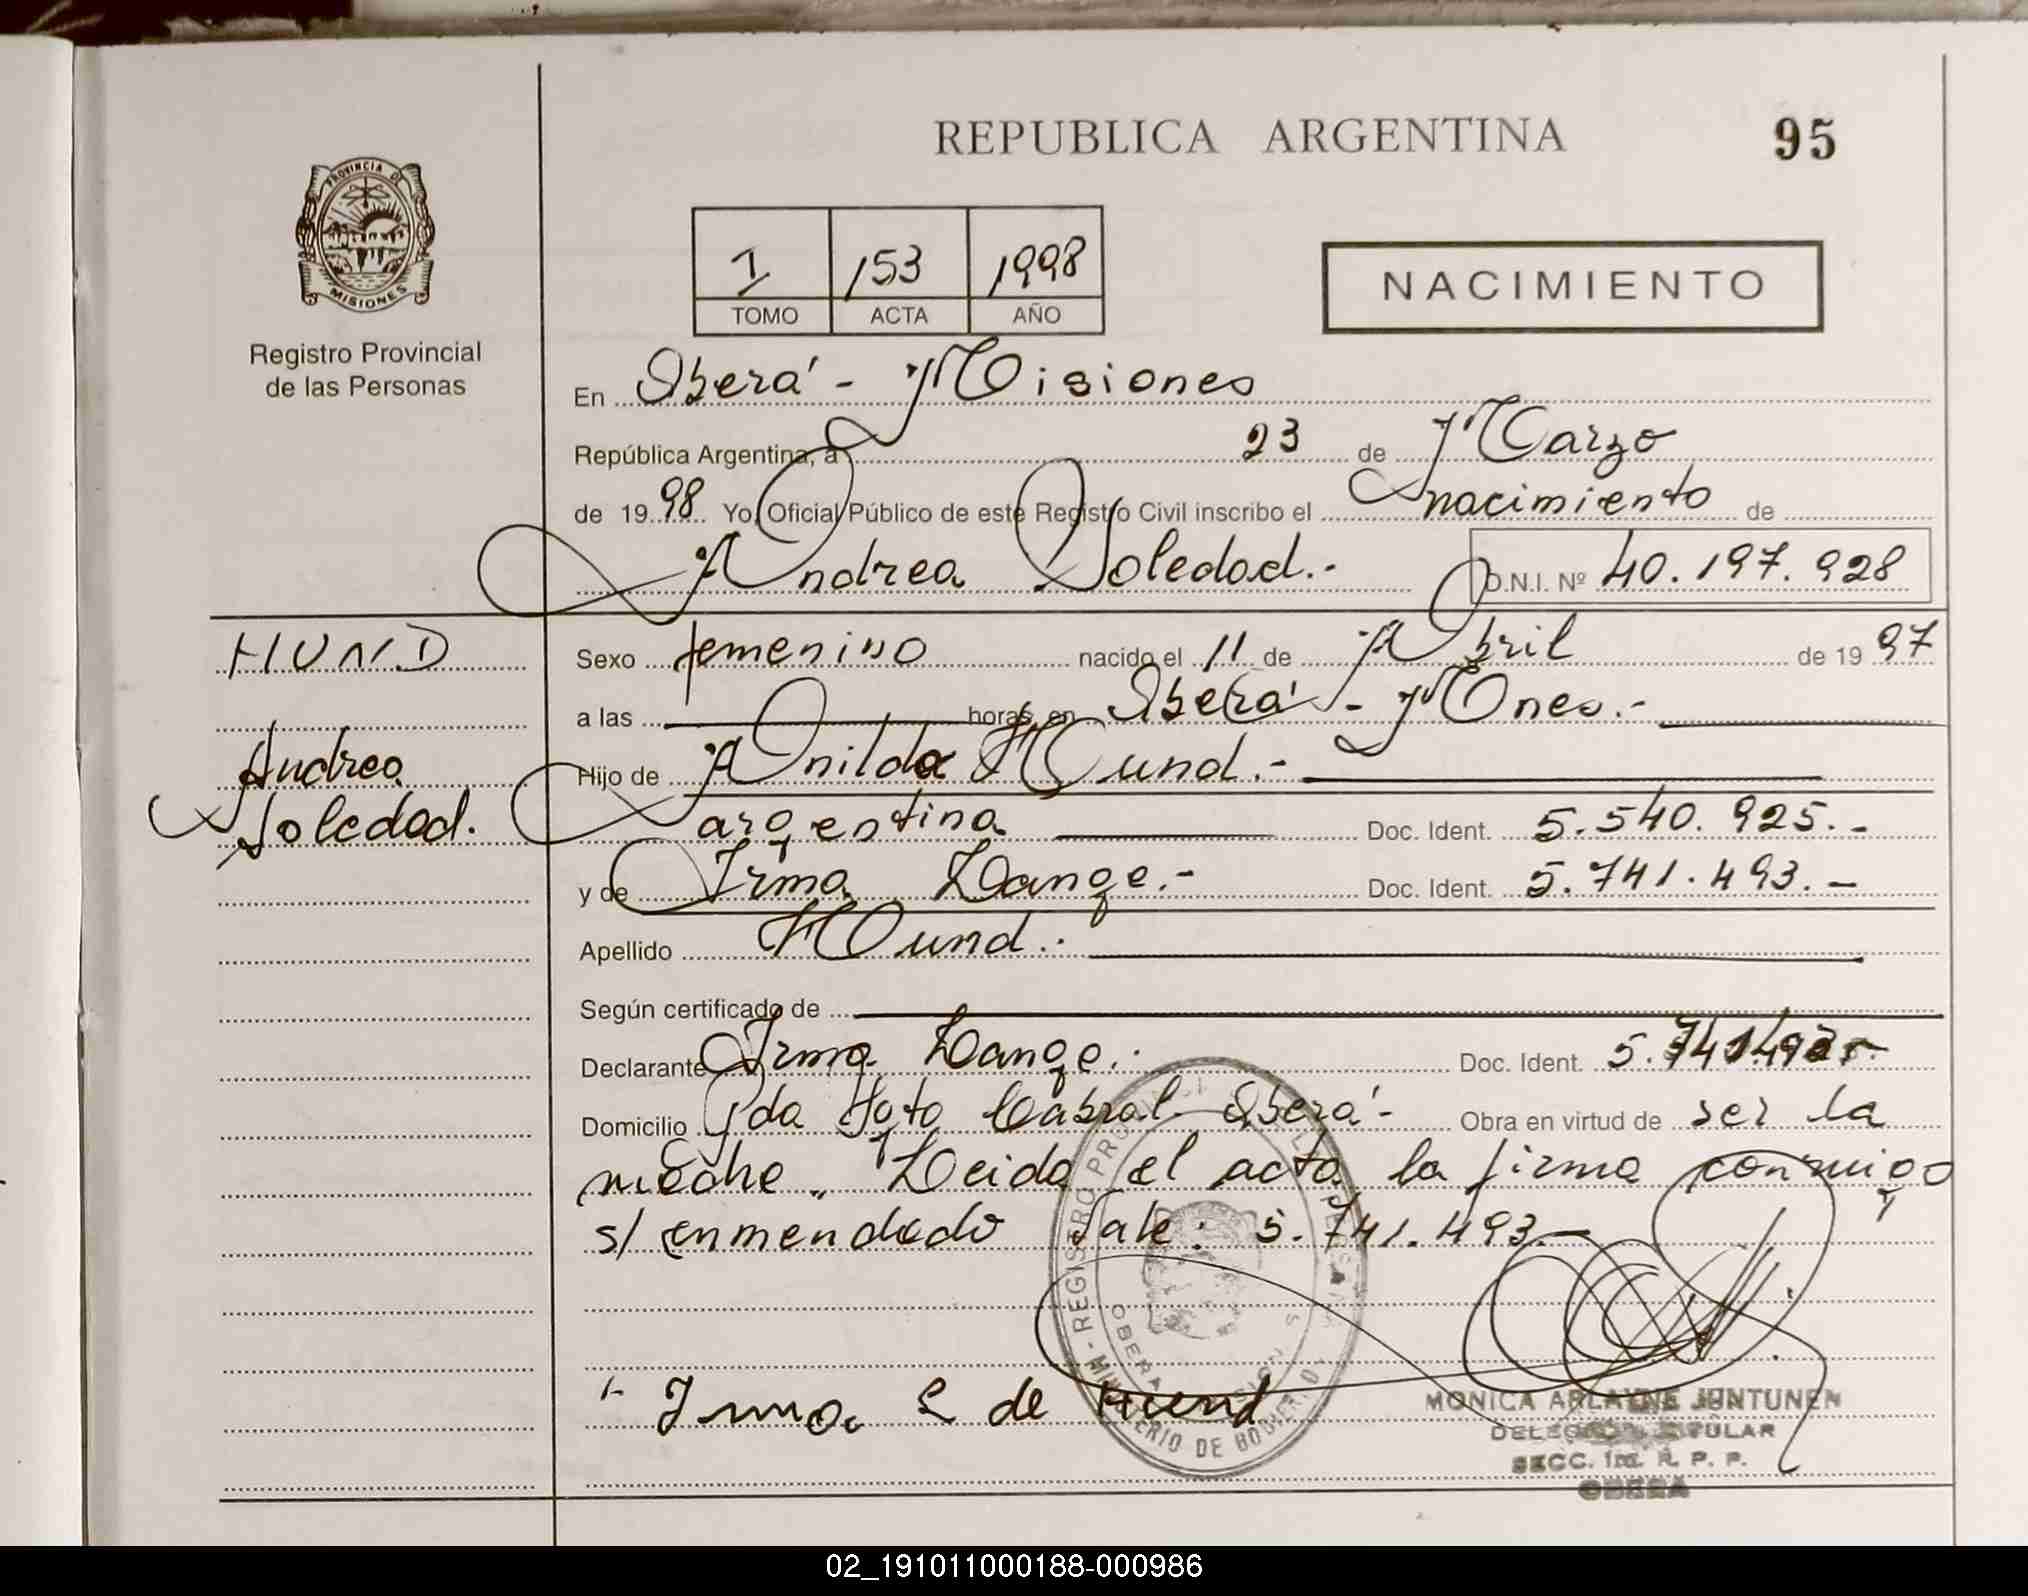 REPUBLICA ARGENTINA
95
PROVINCIA DE
MISIONES
Registro Provincial
de las Personas
I 153 1998
TOMO ACTA AÑO
NACIMIENTO
En Oberá - Misiones
República Argentina, a 23 de Marzo
de 1998 Yo, Oficial Público de este Registro Civil inscribo el nacimiento de
Andrea Soledad.- D.N.I. Nº 40.197.928
HUND
Andrea
Soledad.
Sexo femenino nacido el 11 de Abril de 1997
a las horas en Oberá - Mnes.-
Hijo de Anilda Hund.-
argentina Doc. Ident. 5.540.925.-
y de Irma Lange.- Doc. Ident. 5.741.493.-
Apellido Hund.-
Según certificado de
Declarante Irma Lange.- Doc. Ident. 5.741.493.-
Domicilio Pda Sgto Cabral - Oberá - Obra en virtud de ser la
madre. Leida el acta la firma conmigo
s/ enmendado Vale: 5.741.493.-
Irma L de Hund
REGISTRO PROVINCIAL DE LAS PERSONAS
OBERA MISIONES
MINISTERIO DE GOBIERNO
MONICA ARLAYNE JUNTUNEN
DELEGADA TITULAR
SECC. 1ra. R. P. P.
OBERA
02_191011000188-000986